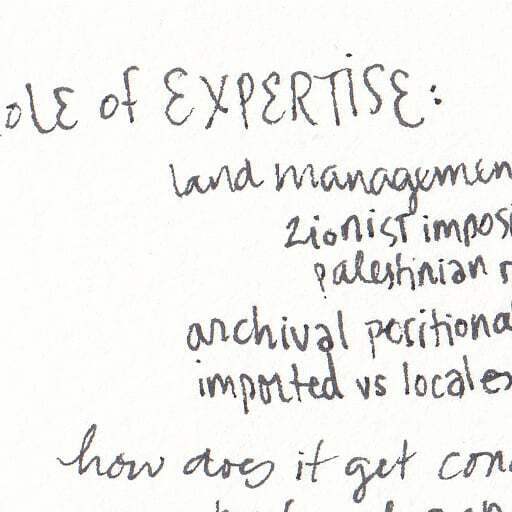 ole of EXPERTiSE:
land managemen
zionist imposi
palestinian r
archival positiona
imported vs locales
how does it get con